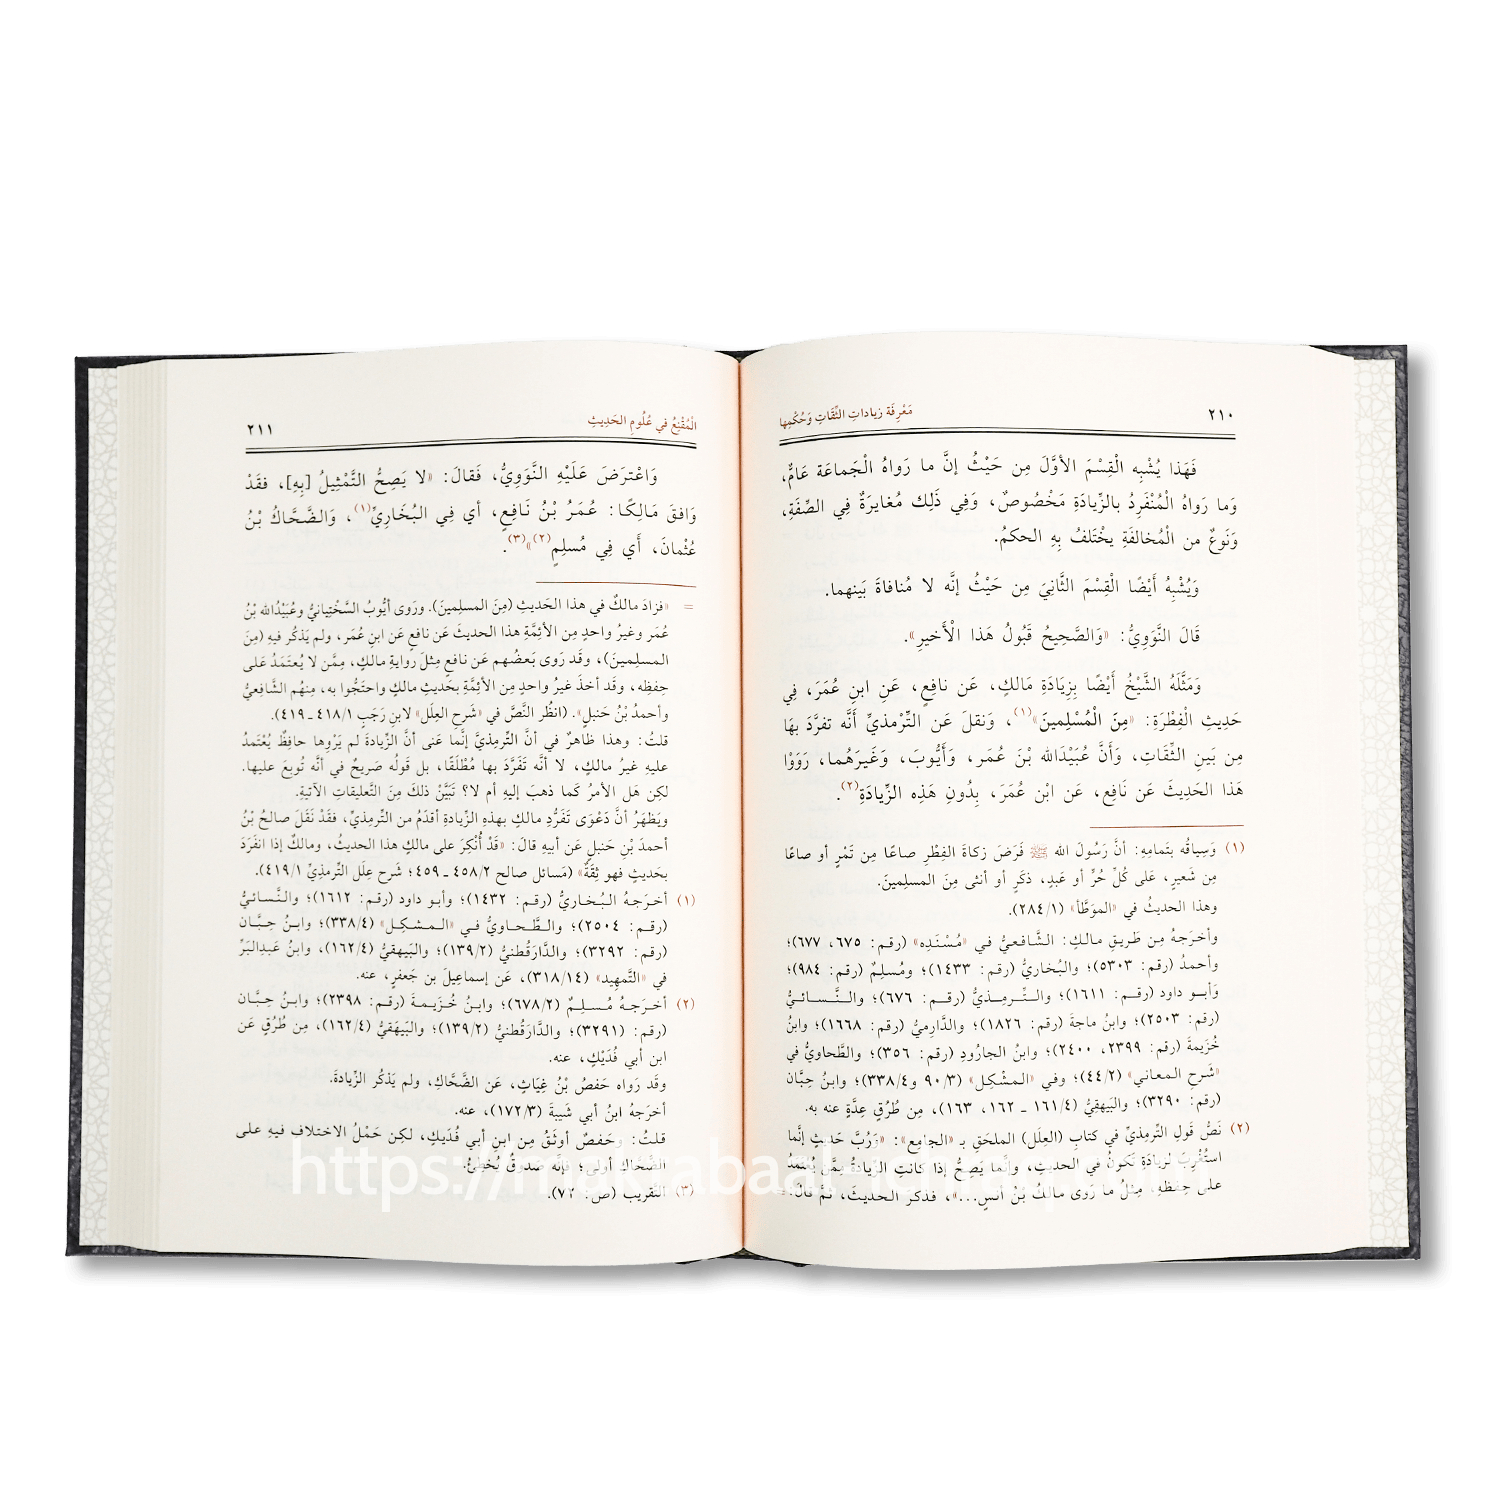 ٢١٠
مَعْرِفَة زياداتِ الثِّقَاتِ وَحُكْمِها
فَهَذا يُشْبِه الْقِسْمَ الأوَّلَ مِن حَيْثُ إنَّ ما رَواهُ الْجَماعَة عَامٌّ،
وَما رَواهُ الْمُنْفَرِدُ بالزِّيادَةِ مَخْصُوصٌ، وَفِي ذَلِك مُغايرَةٌ فِي الصِّفَةِ،
وَنَوعٌ من الْمُخالفَةِ يخْتَلفُ بِهِ الحكمُ.
وَيُشْبِهُ أَيْضًا الْقِسْمَ الثَّانِيَ مِن حَيْثُ إنَّه لا مُنافاةَ بَينهما.
قَالَ النَّوَوِيُّ: «وَالصَّحِيحُ قَبُولُ هَذا الْأَخيرِ».
وَمَثَّلَهُ الشَّيْخُ أَيْضًا بِزِيَادَةِ مَالكٍ، عَن نافِعٍ، عَنِ ابنِ عُمَرَ، فِي
حَدِيثِ الْفِطْرَةِ: «مِنَ الْمُسْلِمينَ»(١)، وَنقلَ عَن التِّرْمذيِّ أَنَّه تفرَّدَ بهَا
مِن بَينِ الثِّقَاتِ، وَأَنَّ عُبَيْدَالله بْنَ عُمَر، وَأَيُّوبَ، وَغَيرَهُما، رَوَوْا
هَذا الحَدِيثَ عَن نَافِعٍ، عَن ابْن عُمَرَ، بِدُونِ هَذِه الزِّيادَةِ(٢).
(١) وَسِياقُه بتَمامِهِ: أنَّ رَسُولَ الله ﷺ فَرَضَ زكاةَ الفِطْرِ صاعًا مِن تَمْرٍ أو صاعًا
مِن شَعيرٍ، عَلى كُلِّ حُرٍّ أو عَبدٍ، ذكَرٍ أو أنثى مِنَ المسلِمينَ.
وهذا الحديثُ في «الموَطَّأ» (٢٨٤/١).
وأخرَجهُ مِن طَريقِ مالكٍ: الشَّافعيُّ في «مُسْنَدِه» (رقم: ٦٧٥، ٦٧٧)؛
وأحمدُ (رقم: ٥٣٠٣)؛ والبُخاريُّ (رقم: ١٤٣٣)؛ ومُسلِمٌ (رقم: ٩٨٤)؛
وَأبــو داود (رقــم: ١٦١١)؛ والتِّـرمـذيُّ (رقــم: ٦٧٦)؛ والنَّسـائـيُّ
(رقم: ٢٥٠٣)؛ وابنُ ماجةَ (رقم: ١٨٢٦)؛ والدَّارِميُّ (رقم: ١٦٦٨)؛ وابنُ
خُزَيمةَ (رقم: ٢٣٩٩، ٢٤٠٠)؛ وابنُ الجارُودِ (رقم: ٣٥٦)؛ والطَّحاويُّ في
«شَرحِ المعاني» (٤٤/٢)؛ وفي «المشْكِل» (٩٠/٣ و٣٣٨/٤)؛ وابنُ حِبَّان
(رقم: ٣٢٩٠)؛ والبَيهقِيُّ (١٦١/٤ ـ ١٦٢، ١٦٣)، مِن طُرُقٍ عِدَّةٍ عنه به.
(٢) نَصُّ قَولِ التِّرمِذيِّ في كتابِ (العِلَل) الملحَقِ بـ «الجامِع»: «وَرُبَّ حَديثٍ إنَّما
استُغْرِبَ لزيادَةٍ تكُونُ في الحديثِ، وإنَّما يَصِحُّ إذا كانتِ الزِّيادةُ مِمَّن يُعْتمَدُ
على حِفظهِ، مِثلُ ما رَوى مالكُ بْنُ أنسٍ...»، فذكر الحديثَ، ثمَّ قالَ: =
الْمُقْنِعُ في عُلُومِ الحَدِيثِ
٢١١
وَاعْترَضَ عَلَيْهِ النَّوَوِيُّ، فَقالَ: «لا يَصِحُّ التَّمْثِيلُ [بِهِ]، فقَدْ
وَافقَ مَالِكًا: عُمَرُ بْنُ نَافِعٍ، أي فِي البُخَارِيِّ(١)، وَالضَّحَّاكُ بْنُ
عُثْمانَ، أَي فِي مُسلِمٍ(٢)»(٣).
= «فزادَ مالكٌ في هذا الحَديثِ (مِنَ المسلِمينَ). ورَوى أيُّوبُ السَّخْتِيانيُّ وعُبَيْدُالله بْنُ
عُمَر وغيرُ واحدٍ مِن الأئِمَّةِ هذا الحديثَ عَن نافعٍ عَن ابنِ عُمَر، ولم يَذكُر فيهِ (مِنَ
المسلِمينَ)، وقَد رَوى بَعضُهم عَن نافعٍ مِثلَ روايةِ مالكٍ، مِمَّن لا يُعتَمَدُ عَلى
حِفظِه، وقَد أخذَ غيرُ واحدٍ مِن الأئِمَّةِ بحَديثِ مالكٍ واحتَجُّوا به، مِنهُم الشَّافِعيُّ
وأحمدُ بْنُ حَنبلٍ». (انظُر النَّصَّ في «شَرحِ العِلَل» لابنِ رَجَبٍ ٤١٨/١ ـ ٤١٩).
قلتُ: وهذا ظاهرٌ في أنَّ التِّرمِذيَّ إنَّما عَنى أنَّ الزِّيادةَ لم يَرْوِها حافِظٌ يُعْتَمدُ
عليهِ غيرُ مالكٍ، لا أنَّه تَفَرَّدَ بها مُطْلَقًا، بل قَولُه صَريحٌ في أنَّه تُوبِعَ عليها.
لكِن هَل الأمرُ كَما ذهبَ إليهِ أم لا؟ تَبَيَّنُ ذلكَ مِنَ التَّعليقاتِ الآتيةِ.
ويَظهَرُ أنَّ دَعْوَى تَفَرُّدِ مالكٍ بهذهِ الزِّيادةِ أقدَمُ من التِّرمِذيِّ، فقَدْ نَقَلَ صالحُ بْنُ
أحمدَ بْنِ حَنبلٍ عَن أبيهِ قالَ: «قَدْ أُنْكِرَ على مالكٍ هذا الحديثُ، ومالكٌ إذا انفَرَدَ
بحَديثٍ فهو ثِقَةٌ» (مَسائل صالح ٤٥٨/٢ ـ ٤٥٩؛ شرح عِلَل التِّرمذيِّ ٤١٩/١).
(١) أخرَجـهُ البُـخاريُّ (رقم: ١٤٣٢)؛ وأبـو داود (رقم: ١٦١٢)؛ والنَّسائيُّ
(رقـم: ٢٥٠٤)؛ والطَّـحـاويُّ فـي «الـمـشـكِـل» (٣٣٨/٤)؛ وابـنُ حِبَّـان
(رقم: ٣٢٩٢)؛ والدَّارَقُطنيُّ (١٣٩/٢)؛ والبَيهقيُّ (١٦٢/٤)، وابنُ عَبدِالبَرِّ
في «التَّمهِيد» (٣١٨/١٤)، عَن إسماعِيلَ بن جَعفرٍ، عنه.
(٢) أخـرَجـهُ مُـسـلِـمٌ (٦٧٨/٢)؛ وابنُ خُزَيـمـةَ (رقم: ٢٣٩٨)؛ وابنُ حِبَّان
(رقم: ٣٢٩١)؛ والدَّارَقُطنيُّ (١٣٩/٢)؛ والبَيهَقيُّ (١٦٢/٤)، مِن طُرُقٍ عَن
ابن أبي فُدَيْكٍ، عنه.
وقَد رَواه حَفصُ بْنُ غِيَاثٍ، عَن الضَّحَّاكِ، ولم يَذكُر الزِّيادةَ.
أخرَجهُ ابنُ أبي شَيبةَ (١٧٢/٣)، عنه.
قلتُ: وحَفصٌ أوثَقُ مِن ابنِ أبي فُدَيكٍ، لكِن حَمْلُ الاختلافِ فيهِ على
الضَّحَّاك أَولى؛ فإنَّه صَدوقٌ يُخْطِئُ.
(٣) التَّقريب (ص: ٧٢).